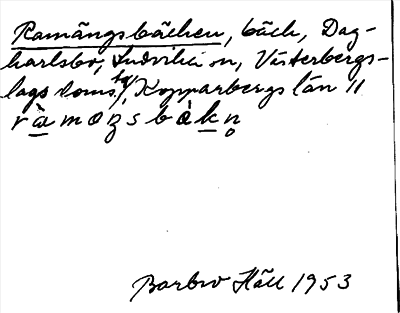 Ramängsbäcken, bäck, Dag-
karlsbo, Ludvika sn, Västerbergs-
lags doms.tg, Kopparbergs län //
ràmoŋsbàkn̥
Barbro Häll 1953